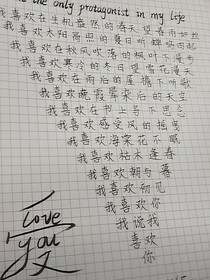 the only protagonist in my life
我喜欢在生机盎然的春天望春雨如丝
我喜欢太阳高照的夏日听蝉
我喜欢在秋风吹落的枫叶下漫步
我喜欢寒冷的冬日望雪花漫天
我喜欢在雨后的屋檐下听歌
我喜欢晚霞晕染后的天空
我喜欢在书上写下思念
我喜欢感受风的摇曳
我喜欢海棠花不眠
我喜欢枯木逢春
我喜欢朝与暮
我喜欢初见
我喜欢你
我说我
喜欢
你
love
you